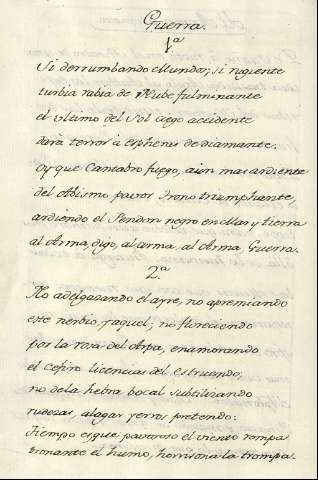 Guerra.
1ª
Si derrumbando Mundos, si rugiente
turbia rabia de Nube fulminante
el ultimo del Sol ciego accidente
dará terror à Espheras de diamante.
oy que Cantabro fuego, aun mas ardiente
del Abismo, pavor Trono triumphante,
ardiendo el Pendon negro en Mar y tierra
al Arma digo, al arma, al Arma, Guerra.
2.ª
No adelgasando el ayre, no apremiando
este nerbio, y aquel; no floreciendo
por la rosa del Arpa, enamorando
el Cefiro licencias del estruendo;
no de la hebra bocal subtilizando
rudezas, alogar yerros pretendo:
Tiempo es que pavoroso el viento rompa
tronante el humo, horrisona la trompa.